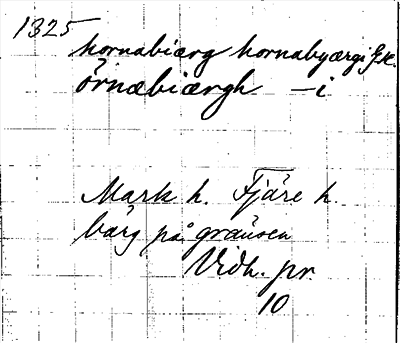 1325
hornabiærg hornabyærgi
örnæbiærgh —i
Mark h. Fjäre h.
bärg på gränsen
Vidh. pr.
10